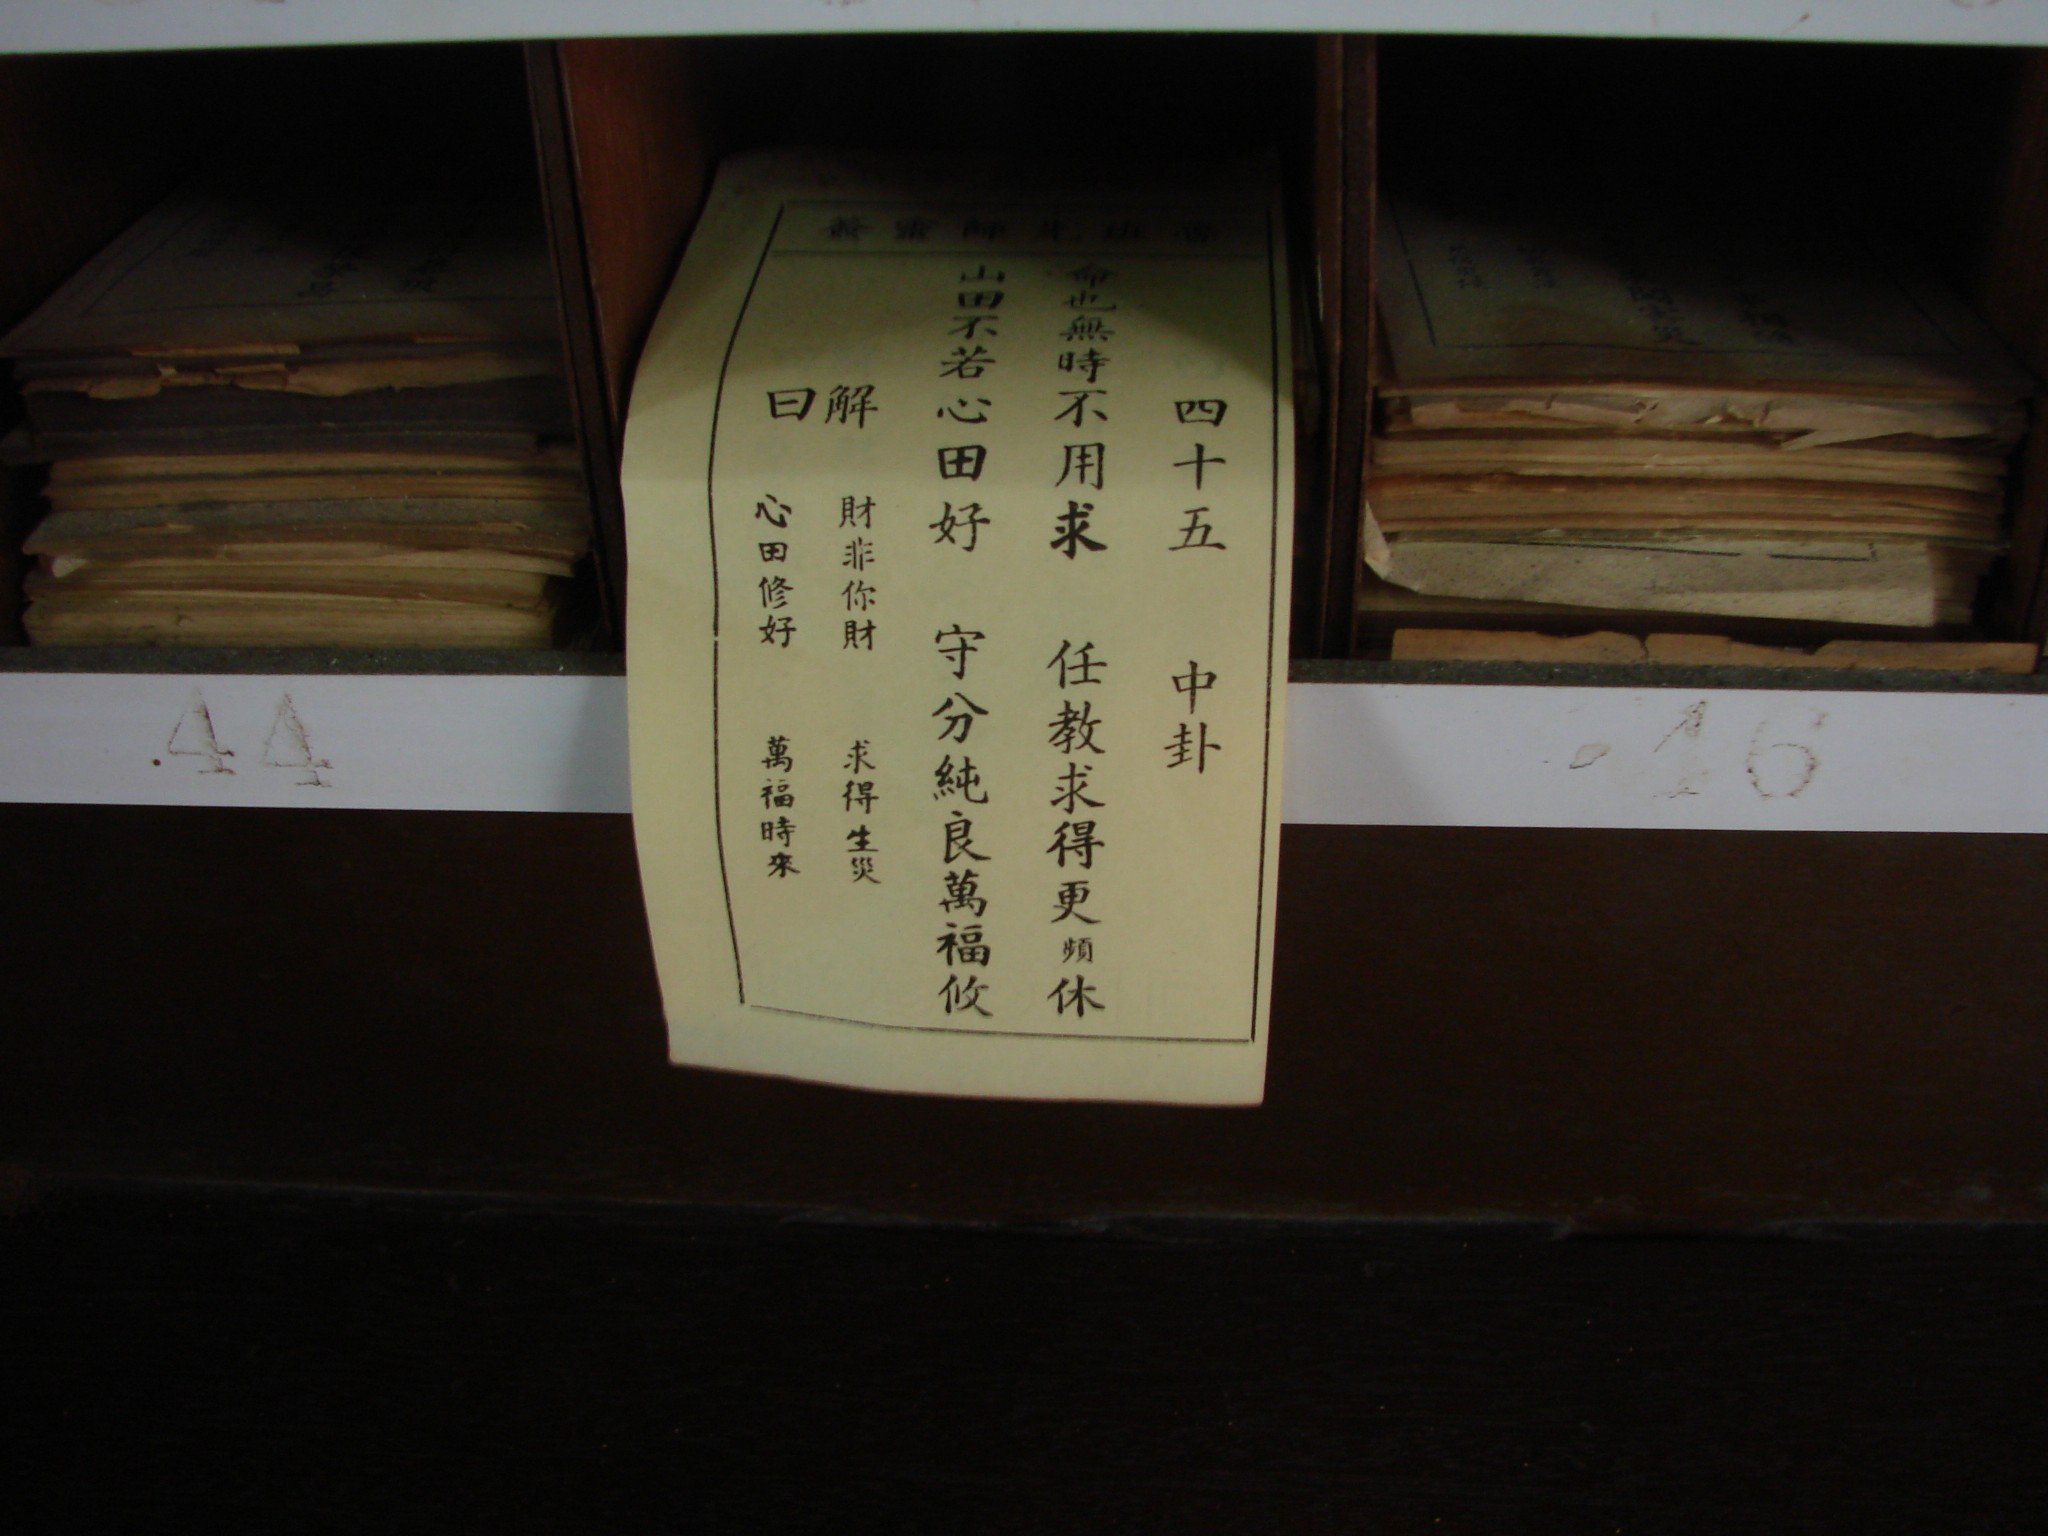 四十五 中卦
命也無時不用求 任教求得更頻休
山田不若心田好 守分純良萬福攸
解曰
財非你財 求得生災
心田修好 萬福時來
44
46